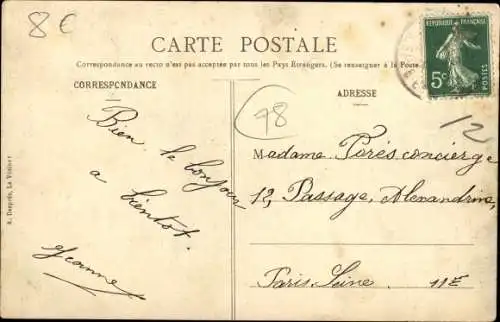 8 €
CARTE POSTALE
Correspondance au recto n'est pas acceptée par tous les Pays Étrangers. (Se renseigner à la Poste
RÉPUBLIQUE FRANÇAISE
5c
POSTES
CORRESPONDANCE
ADRESSE
78
12
Bien le bonjour
a bientot.
Jeanne
Madame Porés concierge
12, Passage, Alexandrine,
Paris-Seine 11E